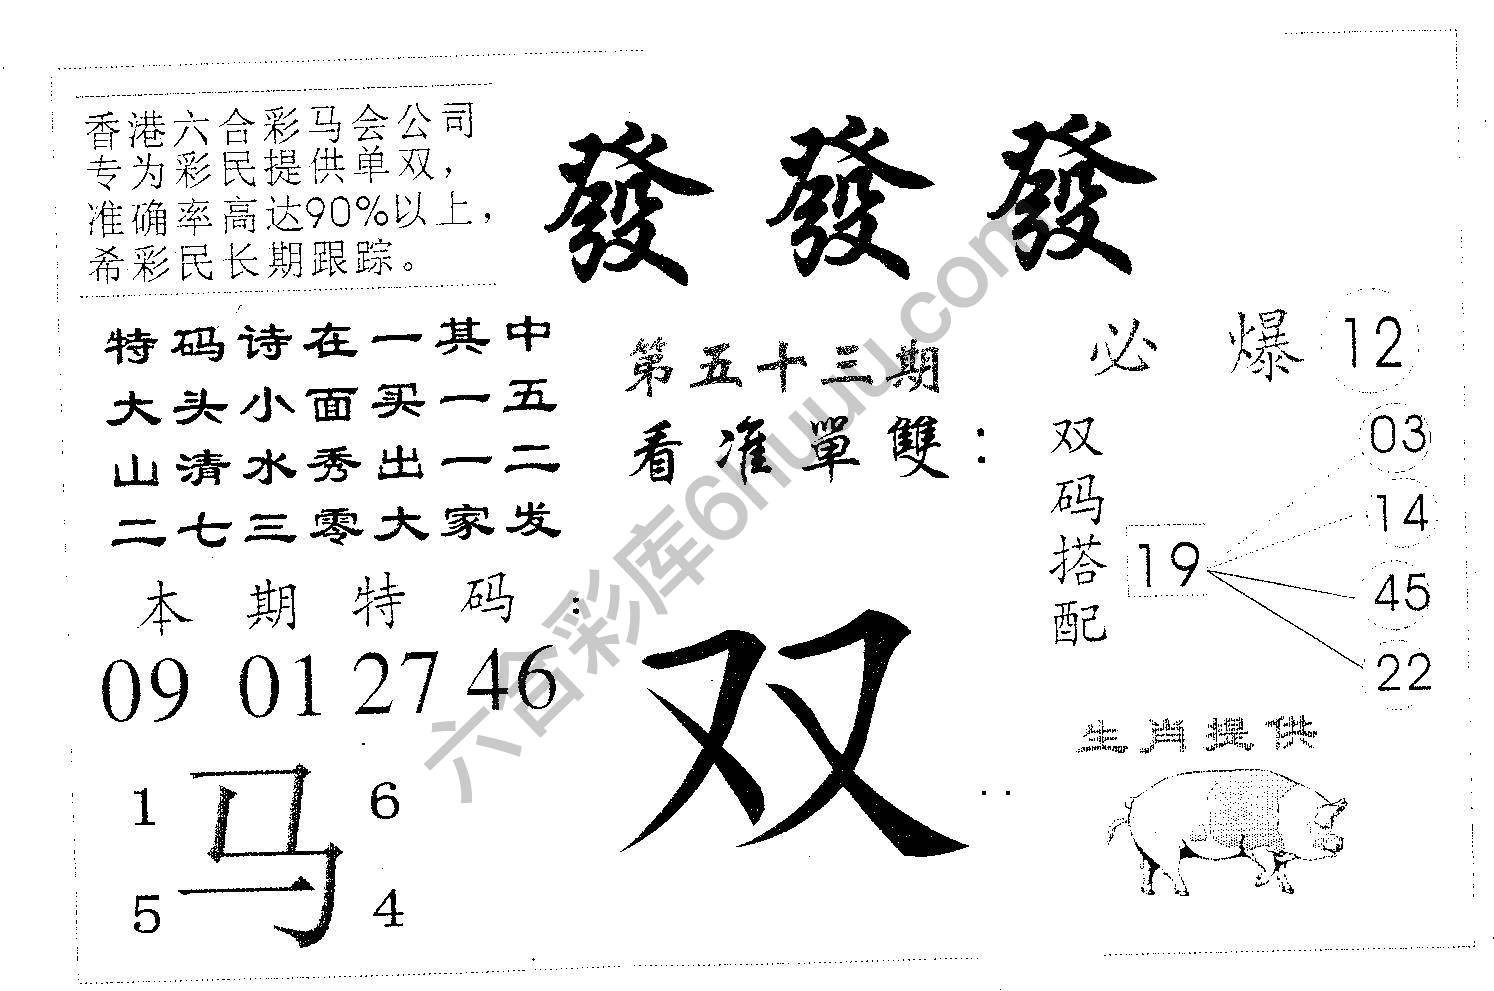 香港六合彩马会公司
专为彩民提供单双，
准确率高达90%以上，
希彩民长期跟踪。
發發發
特码诗在一其中
大头小面买一五
山清水秀出一二
二七三零大家发
第五十三期
看准單雙：
必爆12
双码搭配
19
03
14
45
22
本期特码：
09 01 27 46
1 6
马
5 4
双
生肖提供
六合彩库6huuu.com